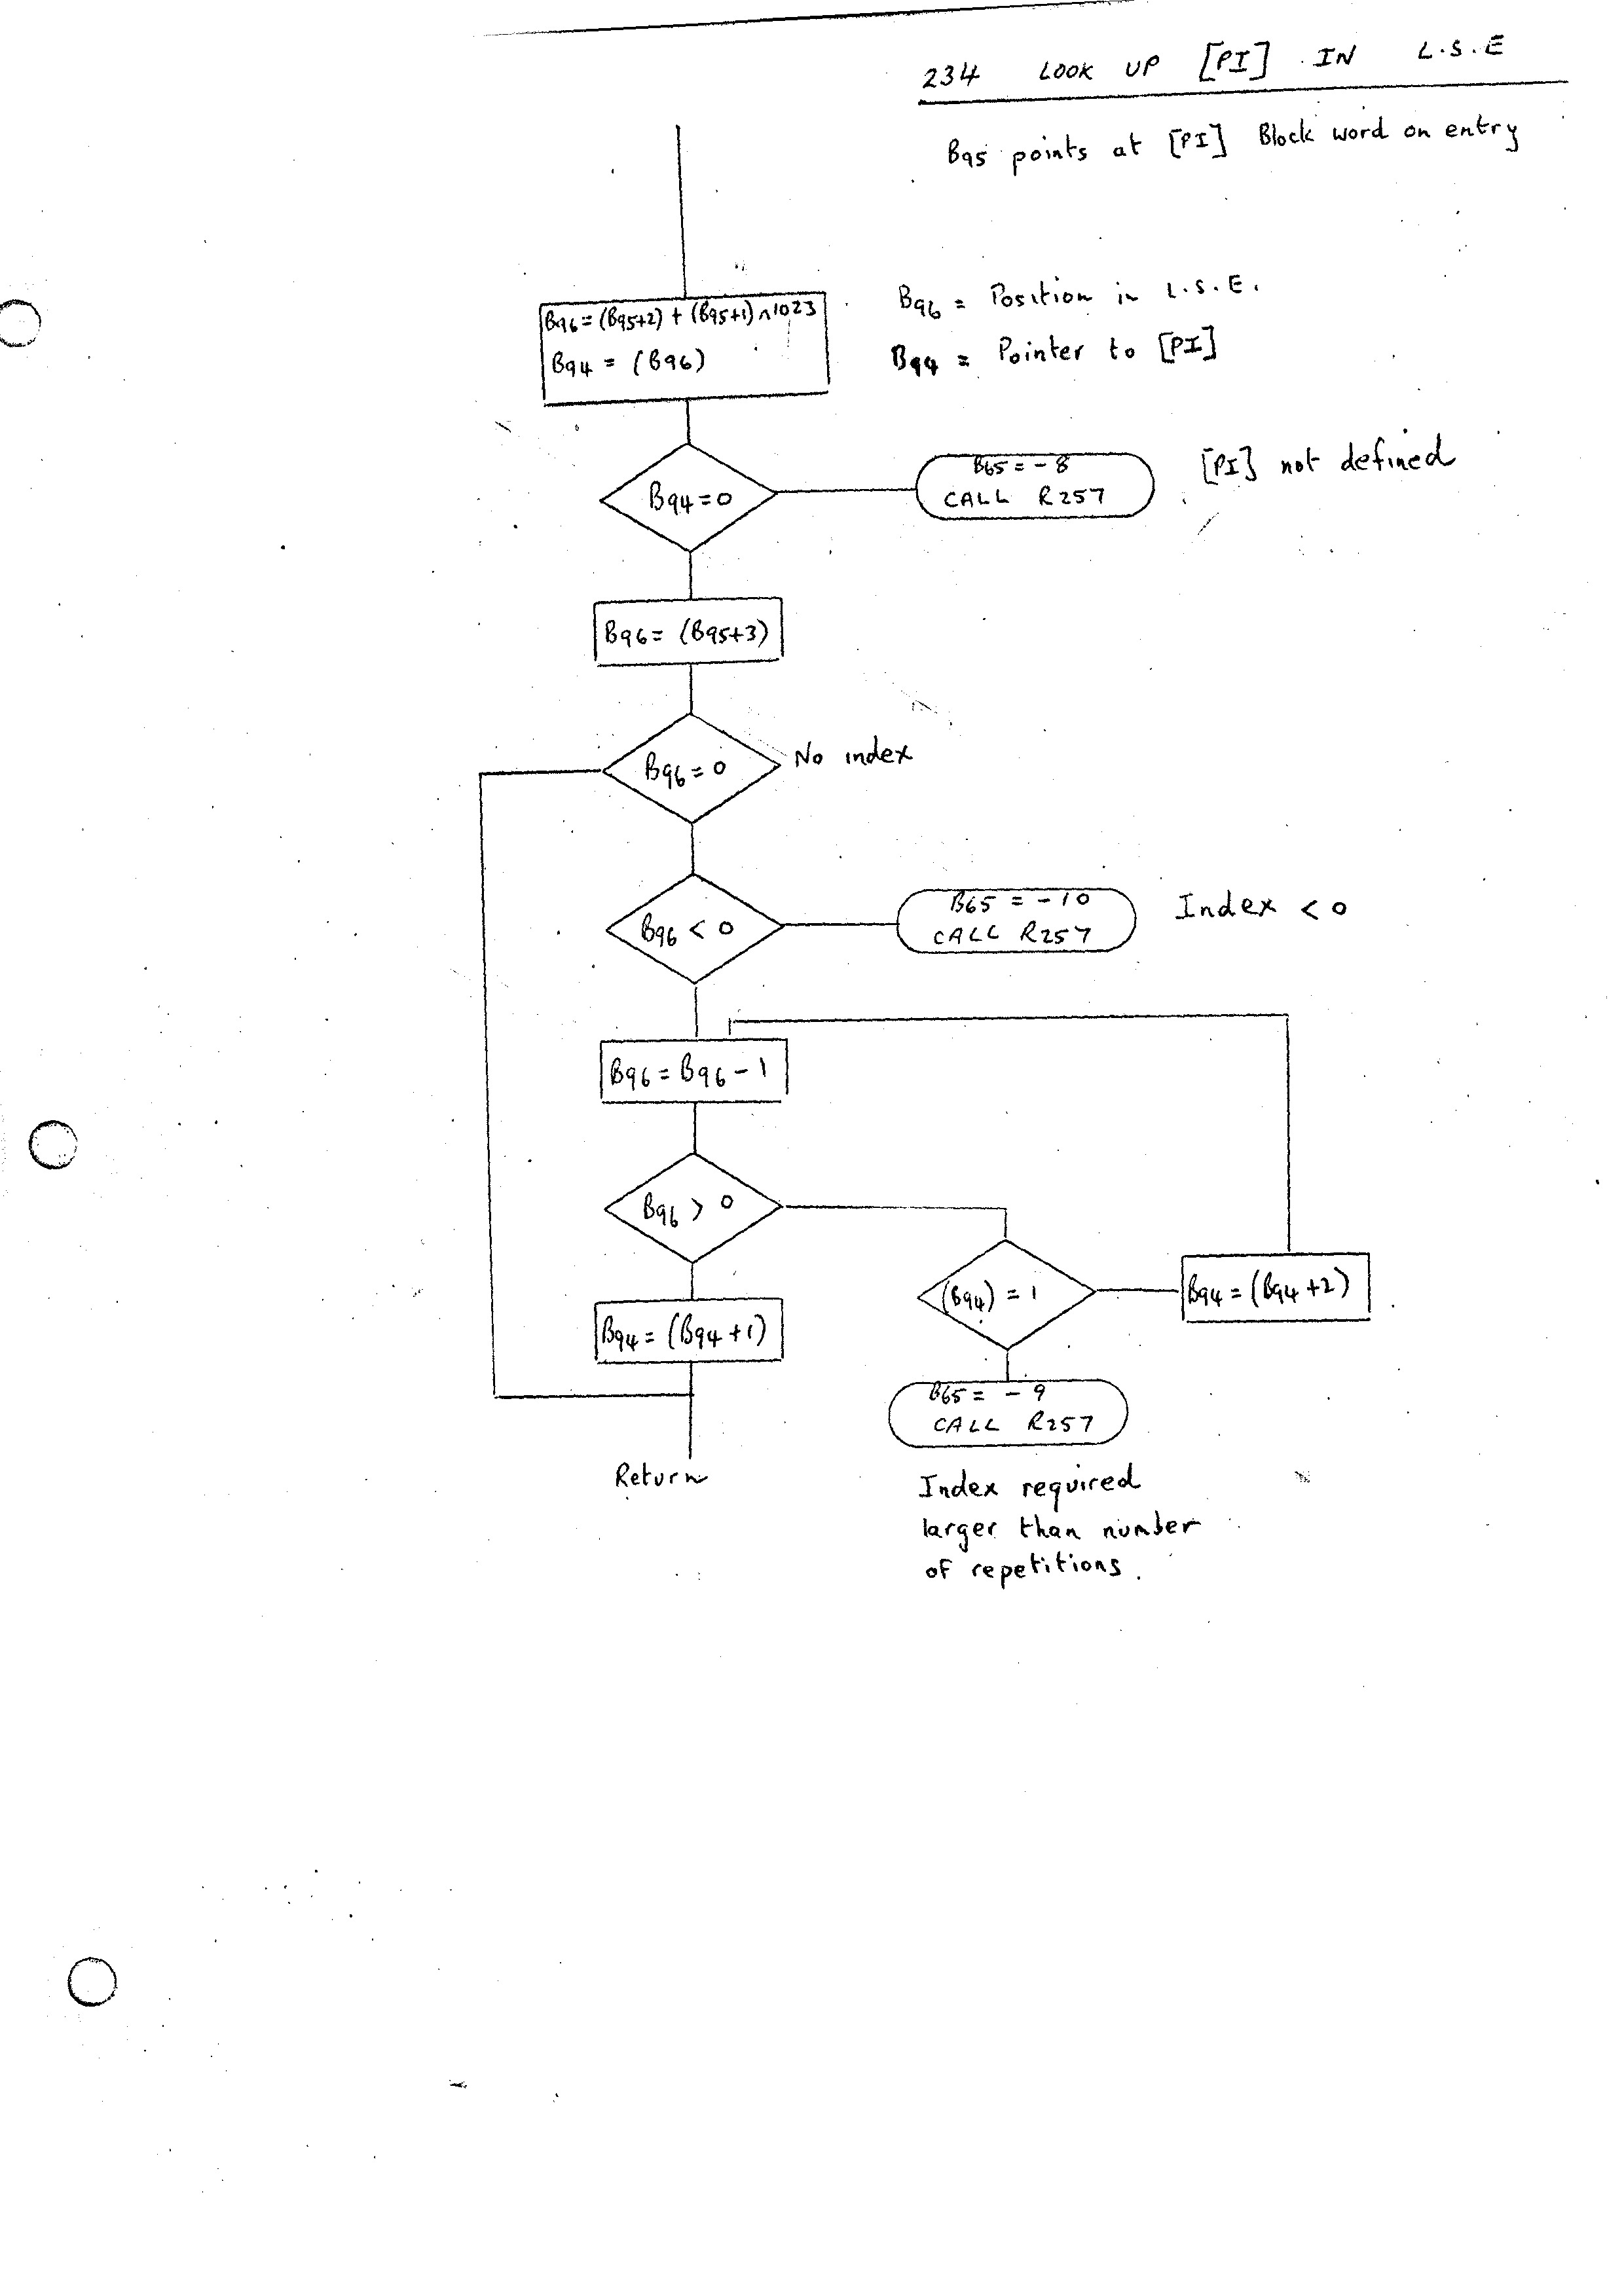 234 LOOK UP [PI] IN L.S.E
B95 points at [PI] Block word on entry
B96 = (B95+2) + (B95+1) ∧ 1023
B94 = (B96)
B96 = Position in L.S.E.
B94 = Pointer to [PI]
B94 = 0
B65 = - 8
CALL R257
[PI] not defined
B96 = (B95+3)
B96 = 0
No index
B96 < 0
B65 = - 10
CALL R257
Index < 0
B96 = B96 - 1
B96 > 0
(B94) = 1
B94 = (B94 +2)
B94 = (B94 +1)
B65 = - 9
CALL R257
Return
Index required
larger than number
of repetitions.